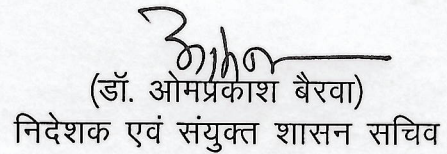 (डॉ. ओमप्रकाश बैरवा)
निदेशक एवं संयुक्त शासन सचिव